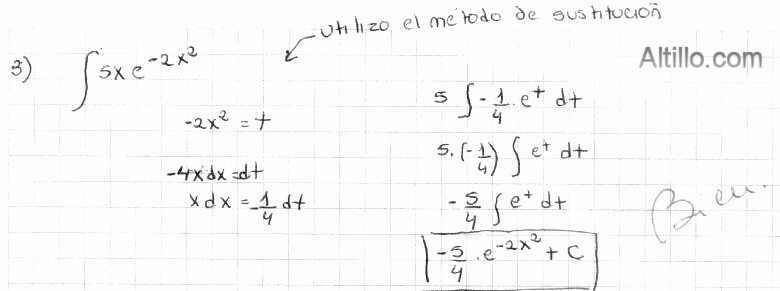 utilizo el método de sustitución
Altillo.com
3) ∫ 5x e^{-2x²}
-2x² = t
-4x dx = dt
x dx = -1/4 dt
5 ∫ -1/4 . e^t dt
5. (-1/4) ∫ e^t dt
-5/4 ∫ e^t dt
-5/4 . e^{-2x²} + C
Bien.